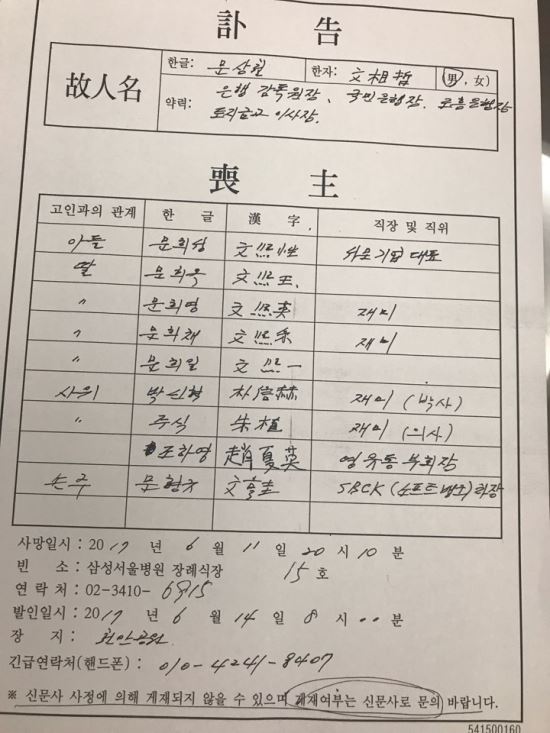 訃 告
故人名
한글: 문상철 한자: 文相哲 (男, 女)
약력: 은행 감독원장, 국민은행장. 조흥은행장
이사장.
喪 主
고인과의 관계 한 글 漢 字 직장 및 직위
아들 문희성 文熙性 대표
딸 문희옥 文熙玉
〃 문희영 文熙英 재미
〃 문희채 文熙采 재미
〃 문희일 文熙一
사위 박신혁 朴信赫 재미 (박사)
〃 주식 朱植 재미 (의사)
조하영 趙夏英 영유통 부회장
손주 문형규 文亨圭 SBCK (소프트뱅크)
사망일시 : 2017 년 6 월 11 일 20 시 10 분
빈 소 : 삼성서울병원 장례식장 15 호
연 락 처 : 02-3410- 6915
발인일시 : 2017 년 6 월 14 일 8 시 00 분
장 지 : 천안공원
긴급연락처(핸드폰) : 010-4241-8407
※ 신문사 사정에 의해 게재되지 않을 수 있으며 게재여부는 신문사로 문의 바랍니다.
541500160